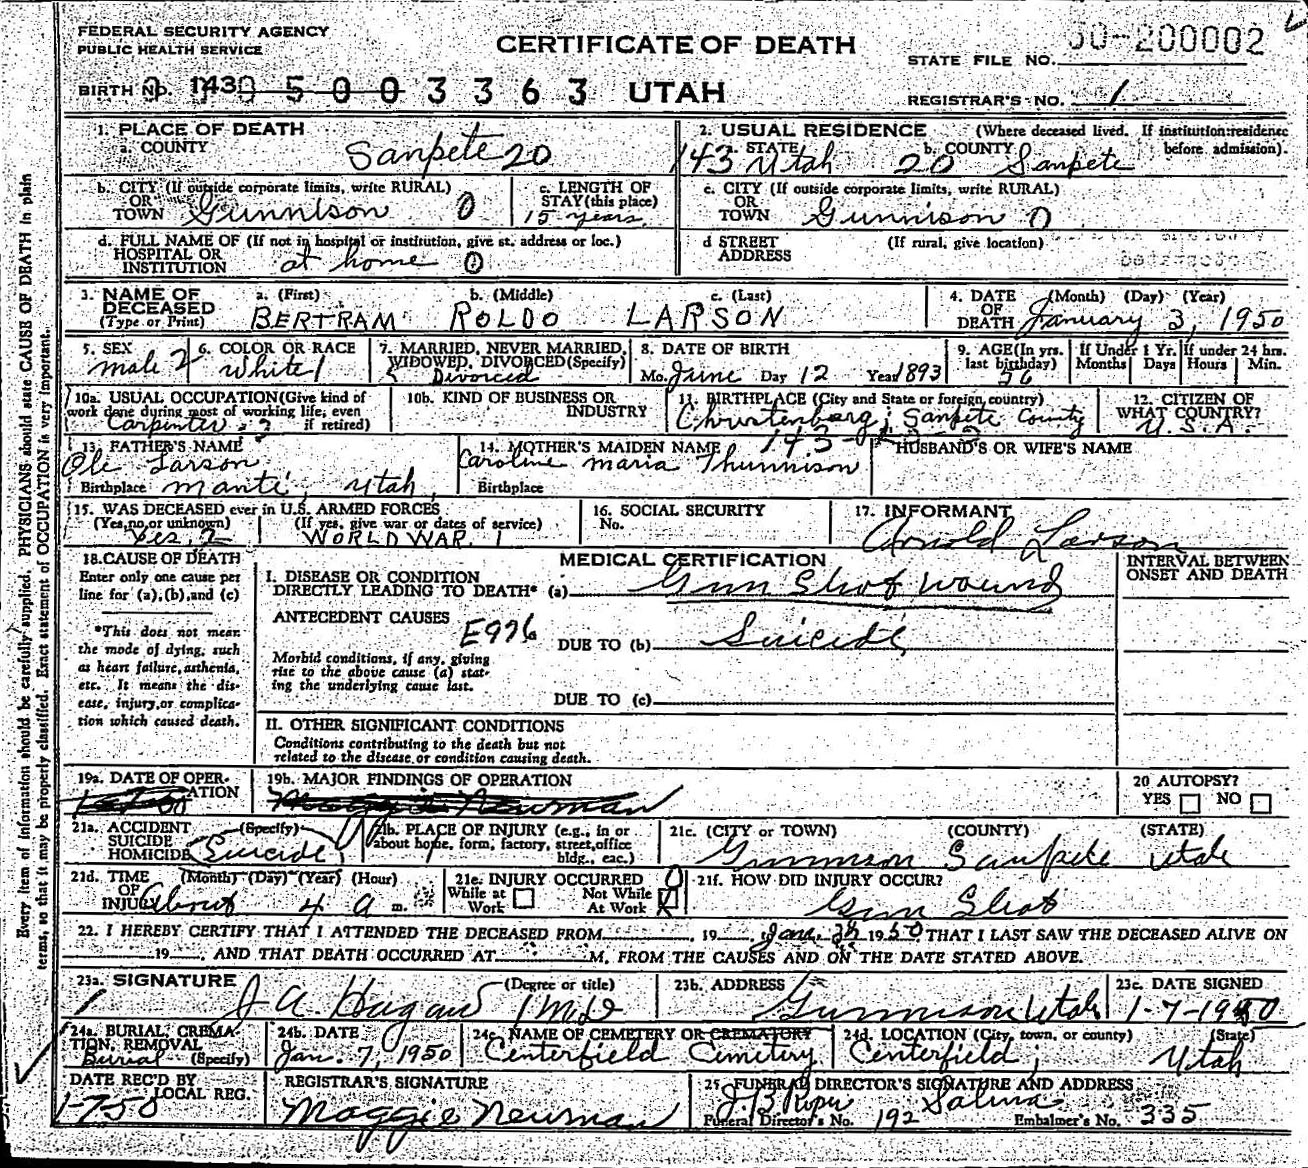 FEDERAL SECURITY AGENCY
PUBLIC HEALTH SERVICE
CERTIFICATE OF DEATH
STATE FILE NO. 50-200002
BIRTH NO. 1430 5 0 0 3 3 6 3 UTAH
REGISTRAR'S NO. 1
1. PLACE OF DEATH
a. COUNTY Sanpete 20
2. USUAL RESIDENCE (Where deceased lived. If institution: residence before admission).
143 a. STATE Utah 20 b. COUNTY Sanpete
b. CITY (If outside corporate limits, write RURAL)
OR
TOWN Gunnison 0
c. LENGTH OF
STAY (this place)
15 years.
c. CITY (If outside corporate limits, write RURAL)
OR
TOWN Gunnison 0
d. FULL NAME OF (If not in hospital or institution, give st. address or loc.)
HOSPITAL OR
INSTITUTION at home 0
d STREET (If rural, give location)
ADDRESS
3. NAME OF DECEASED
(Type or Print)
a. (First) b. (Middle) c. (Last)
BERTRAM ROLDO LARSON
4. DATE OF DEATH (Month) (Day) (Year)
January 3, 1950
5. SEX
male 2
6. COLOR OR RACE
White 1
7. MARRIED, NEVER MARRIED, WIDOWED, DIVORCED (Specify)
Divorced
8. DATE OF BIRTH
Mo. June Day 12 Year 1893
9. AGE (In yrs. last birthday)
56
If Under 1 Yr. Months Days
If under 24 hrs. Hours Min.
10a. USUAL OCCUPATION (Give kind of work done during most of working life, even if retired)
Carpenter
10b. KIND OF BUSINESS OR INDUSTRY
11. BIRTHPLACE (City and State or foreign country)
Sanpete County
12. CITIZEN OF WHAT COUNTRY?
U.S.A.
13. FATHER'S NAME
Ole Larson
Birthplace Manti, Utah
14. MOTHER'S MAIDEN NAME
Caroline Maria Thunnison
Birthplace
HUSBAND'S OR WIFE'S NAME
15. WAS DECEASED ever in U.S. ARMED FORCES
(Yes, no, or unknown) (If yes, give war or dates of service)
Yes. 2 WORLD WAR. 1
16. SOCIAL SECURITY
No.
17. INFORMANT
Arnold Larson
18. CAUSE OF DEATH
Enter only one cause per line for (a), (b), and (c)
*This does not mean the mode of dying, such as heart failure, asthenia, etc. It means the disease, injury, or complication which caused death.
MEDICAL CERTIFICATION
INTERVAL BETWEEN ONSET AND DEATH
I. DISEASE OR CONDITION
DIRECTLY LEADING TO DEATH* (a) Gun Shot wound
ANTECEDENT CAUSES E976
DUE TO (b) Suicide
Morbid conditions, if any, giving rise to the above cause (a) stating the underlying cause last.
DUE TO (c)
II. OTHER SIGNIFICANT CONDITIONS
Conditions contributing to the death but not related to the disease or condition causing death.
19a. DATE OF OPERATION
19b. MAJOR FINDINGS OF OPERATION
Maggie Newman
20 AUTOPSY?
YES NO
21a. ACCIDENT (Specify)
SUICIDE
HOMICIDE Suicide
21b. PLACE OF INJURY (e.g., in or about home, form, factory, street, office bldg., eac.)
21c. (CITY or TOWN) (COUNTY) (STATE)
Gunnison Sanpete Utah
21d. TIME (Month) (Day) (Year) (Hour)
OF
INJURY About 4 a m.
21e. INJURY OCCURRED 0
While at Work Not While At Work X
21f. HOW DID INJURY OCCUR?
Gun Shot
22. I HEREBY CERTIFY THAT I ATTENDED THE DECEASED FROM , 19 , Jan. 1950 THAT I LAST SAW THE DECEASED ALIVE ON
19 , AND THAT DEATH OCCURRED AT M, FROM THE CAUSES AND ON THE DATE STATED ABOVE.
23a. SIGNATURE (Degree or title)
J A Hagan 1 MD
23b. ADDRESS
Gunnison Utah
23c. DATE SIGNED
1-7-1950
24a. BURIAL, CREMATION, REMOVAL
Burial (Specify)
24b. DATE
Jan. 7, 1950
24c. NAME OF CEMETERY OR CREMATORY
Centerfield Cemetery
24d. LOCATION (City, town, or county) (State)
Centerfield, Utah
DATE REC'D BY LOCAL REG.
1-7-50
REGISTRAR'S SIGNATURE
Maggie Newman
25. FUNERAL DIRECTOR'S SIGNATURE AND ADDRESS
Salina
Funeral Director's No. 192 Embalmer's No. 335
Every item of information should be carefully supplied. PHYSICIANS should state CAUSE OF DEATH in plain
terms, so that it may be properly classified. Exact statement of OCCUPATION is very important.